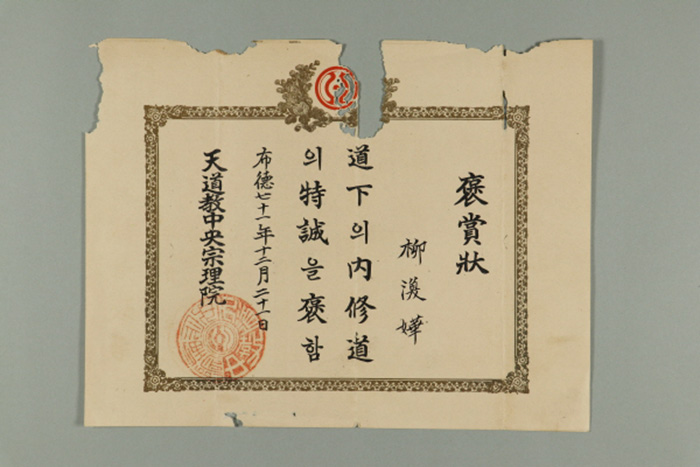 褒賞狀
柳 嬅
道下의內修道
의特誠을褒함
布德七十一年十二月二十一日
天道敎中央宗理院